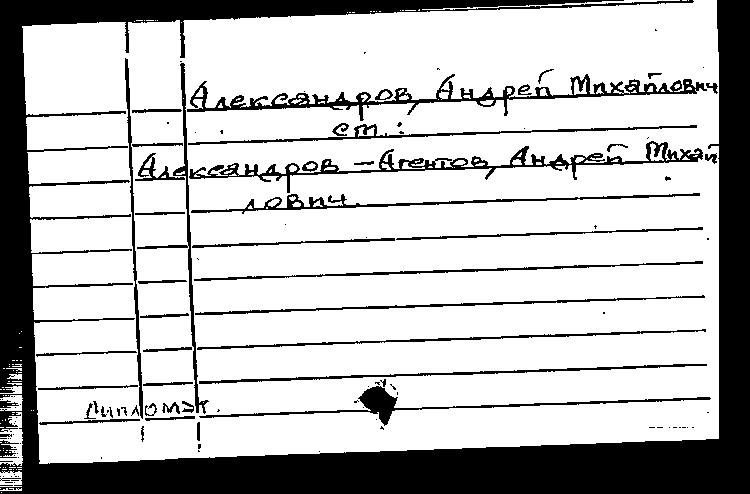 Александров, Андрей Михайлович
ст.:
Александров – Агентов, Андрей Михай
лович.
Дипломат.